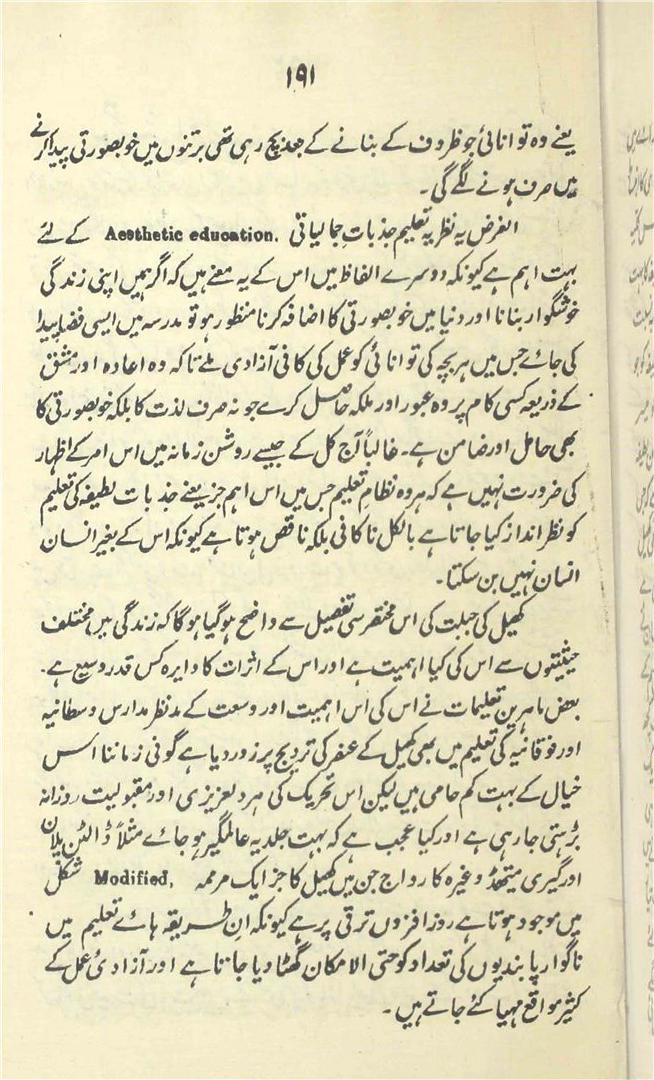 ۱۹۱
یعنے وہ توانائی جو ظروف کے بنانے کے بعد بچ رہی تھی برتنوں میں خوبصورتی پیدا کرنے
میں صرف ہونے لگے گی۔
الغرض یہ نظریہ تعلیم جذباتِ جمالیاتی Aesthetic education. کے لئے
بہت اہم ہے کیونکہ دوسرے الفاظ میں اس کے یہ معنے ہیں کہ اگر ہمیں اپنی زندگی
خوشگوار بنانا اور دنیا میں خوبصورتی کا اضافہ کرنا منظور ہو تو مدرسہ میں ایسی فضا پیدا
کی جائے جس میں ہر بچہ کی توانائی کو عمل کی کافی آزادی ملے تاکہ وہ اعادہ اور مشق
کے ذریعہ کسی کام پر وہ عبور اور ملکہ حاصل کرے جو نہ صرف لذت کا بلکہ خوبصورتی کا
بھی حامل اور ضامن ہے۔ غالباً آج کل کے جیسے روشن زمانہ میں اس امر کے اظہار
کی ضرورت نہیں ہے کہ ہر وہ نظامِ تعلیم جس میں اس اہم جز یعنے جذبات لطیفہ کی تعلیم
کو نظر انداز کیا جاتا ہے بالکل ناکافی بلکہ ناقص ہوتا ہے کیونکہ اس کے بغیر انسان
انسان نہیں بن سکتا۔
کھیل کی جبلت کی اس مختصر سی تفصیل سے واضح ہو گیا ہو گا کہ زندگی میں مختلف
حیثیتوں سے اس کی کیا اہمیت ہے اور اس کے اثرات کا دایرہ کس قدر وسیع ہے۔
بعض ماہرین تعلیمات نے اس کی اس اہمیت اور وسعت کے مدنظر مدارس وسطانیہ
اور فوقانیہ کی تعلیم میں بھی کھیل کے عنصر کی ترویج پر زور دیا ہے گو فی زماننا اس
خیال کے بہت کم حامی ہیں لیکن اس تحریک کی ہر دلعزیزی اور مقبولیت روزانہ
بڑہتی جا رہی ہے اور کیا عجب ہے کہ بہت جلد یہ عالمگیر ہو جائے مثلاً ڈالٹن پلان
اور گیری میتھڈ وغیرہ کا رواج جن میں کھیل کا جز ایک مرممہ Modified, شکل
میں موجود ہوتا ہے روز افزوں ترقی پر ہے کیونکہ ان طریقہ ہائے تعلیم میں
ناگوار پابندیوں کی تعداد کو حتی الامکان گھٹا دیا جاتا ہے اور آزادیٔ عمل کے
کثیر مواقع مہیا کئے جاتے ہیں۔